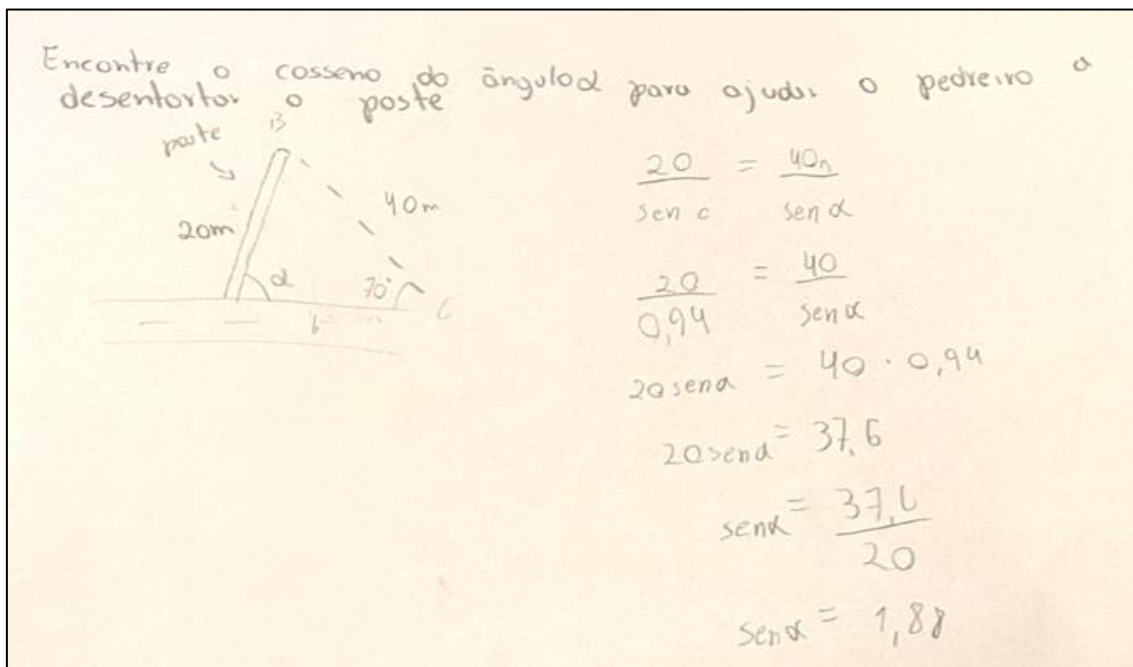 Encontre o cosseno do ângulo α para ajudar o pedreiro a
desentortar o poste
poste
B
20m
40m
α
70°
C
b
20 / sen c = 40 / sen α
20 / 0,94 = 40 / sen α
20 sen α = 40 · 0,94
20 sen α = 37,6
sen α = 37,6 / 20
sen α = 1,88